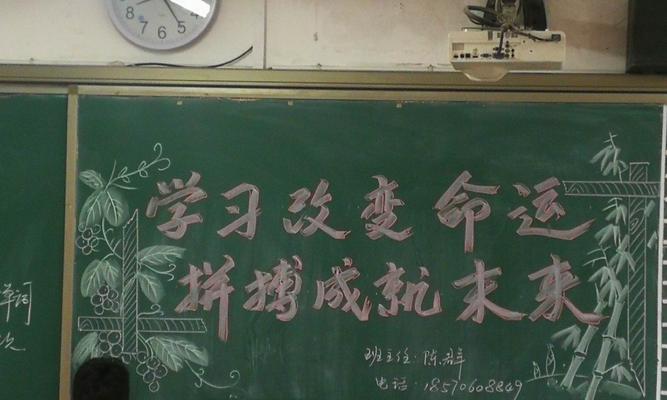 8 7 6 5 4
学习改变命运
拼搏成就未来
单词
次
班主任：陈
电话：18570608849